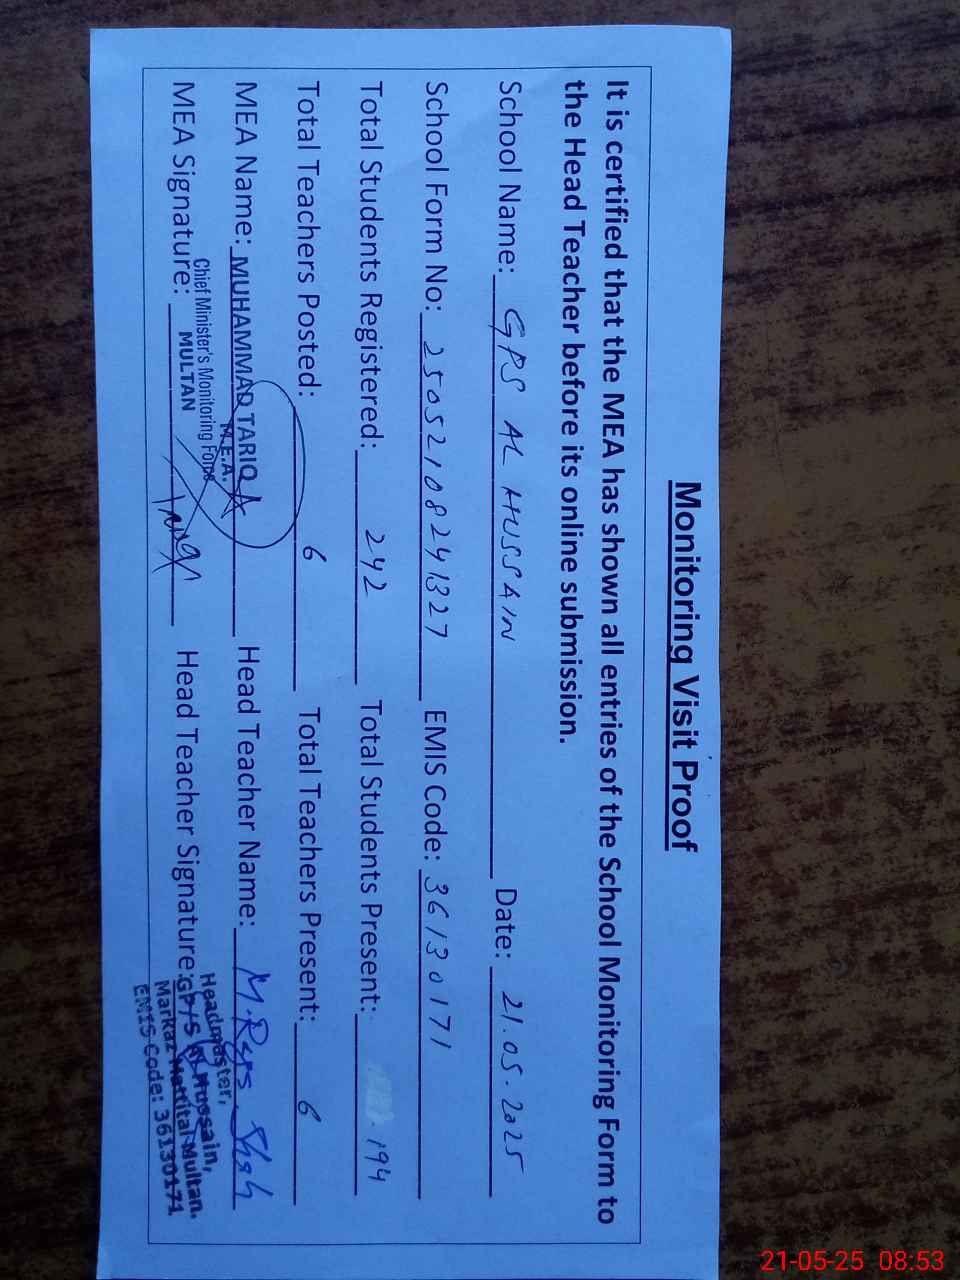 Monitoring Visit Proof
It is certified that the MEA has shown all entries of the School Monitoring Form to
the Head Teacher before its online submission.
School Name: GPS AL HUSSAIN Date: 21.05.2025
School Form No: 25052108241327 EMIS Code: 36130171
Total Students Registered: 242 Total Students Present: 194
Total Teachers Posted: 6 Total Teachers Present: 6
MEA Name: MUHAMMAD TARIQ Head Teacher Name: M. Shah
M.E.A.
Chief Minister's Monitoring Force
MULTAN
MEA Signature: Head Teacher Signature:
Headmaster,
GP/S Al Hussain,
Markaz Mattital Multan.
EMIS Code: 36130171
21-05-25 08:53